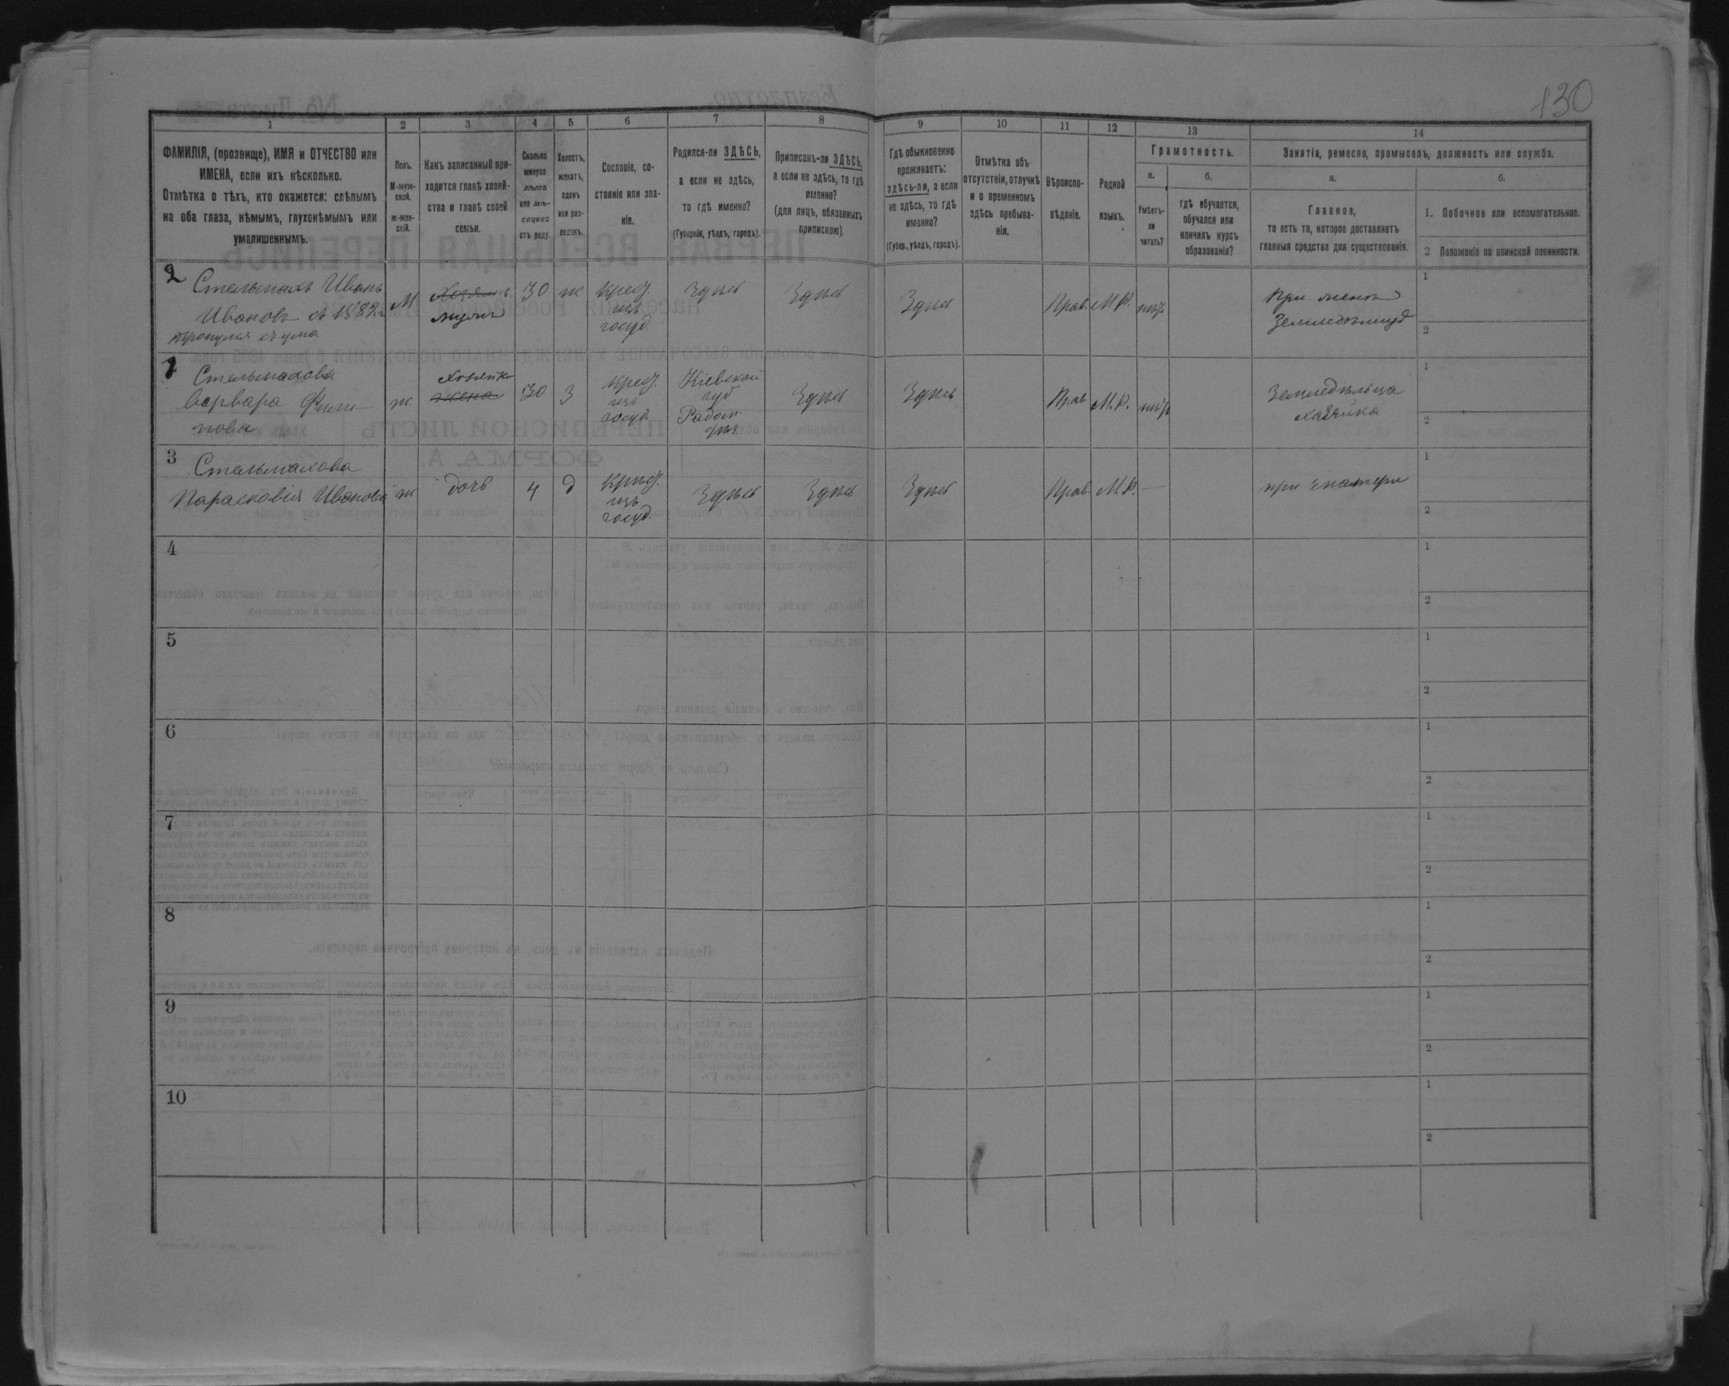 130
1
2
3
4
5
6
7
8
9
10
11
12
13
14
ФАМИЛІЯ, (прозвище), ИМЯ и ОТЧЕСТВО или
ИМЕНА, если ихъ нѣсколько.
Отмѣтка о тѣхъ, кто окажется: слѣпымъ
на оба глаза, нѣмымъ, глухонѣмымъ или
умалишеннымъ.
Полъ.
М-муж-
ской.
ж-жен-
скій.
Какъ записанный при-
ходится главѣ хозяй-
ства и главѣ своей
семьи.
Сколько
минуло
лѣтъ
или мѣ-
сяцевъ
отъ роду.
Холостъ,
женатъ,
вдовъ
или раз-
веденъ.
Сословіе, со-
стояніе или зва-
ніе.
Родился-ли ЗДѢСЬ,
а если не здѣсь,
то гдѣ именно?
(Губернія, уѣздъ, городъ).
Приписанъ-ли ЗДѢСЬ,
а если не здѣсь, то гдѣ
именно?
(для лицъ, обязанныхъ
припискою).
Гдѣ обыкновенно
проживаетъ:
здѣсь-ли, а если
не здѣсь, то гдѣ
именно?
(Губер., уѣздъ, городъ).
Отмѣтка объ
отсутствіи, отлучкѣ
и о временномъ
здѣсь пребыва-
ніи.
Вѣроиспо-
вѣданіе.
Родной
языкъ.
Грамотность.
а.
б.
Умѣетъ-
ли
читать?
гдѣ обучается,
обучался или
кончилъ курсъ
образованія?
Занятія, ремесло, промыселъ, должность или служба.
а.
б.
Главное,
то есть то, которое доставляетъ
главныя средства для существованія.
1. Побочное или вспомогательное.
2 Положеніе по воинской повинности.
2
Стельмахъ Иванъ
Ивановъ съ 1889 г.
тронулся съ ума
М
Хозяинъ
мужъ
30
ж
Крест.
изъ
госуд.
Здѣсь
Здѣсь
Здѣсь
Прав.
М.Р.
нѣтъ
При женѣ
Земледѣлецъ
1
2
1
Стельмахова
Варвара Фили-
пова
ж
хозяйка
жена
30
З
крест.
изъ
госуд.
Кіевской
губ
Радом.
уѣз.
Здѣсь
Здѣсь
Прав
М.Р.
нѣтъ
Земледѣльца
хозяйка
1
2
3
Стельмахова
Парасковія Иванова
ж
дочь
4
д
Крест.
изъ
госуд
Здѣсь
Здѣсь
Здѣсь
Прав.
М.Р.
—
при матери
1
2
4
1
2
5
1
2
6
1
2
7
1
2
8
1
2
9
1
2
10
1
2